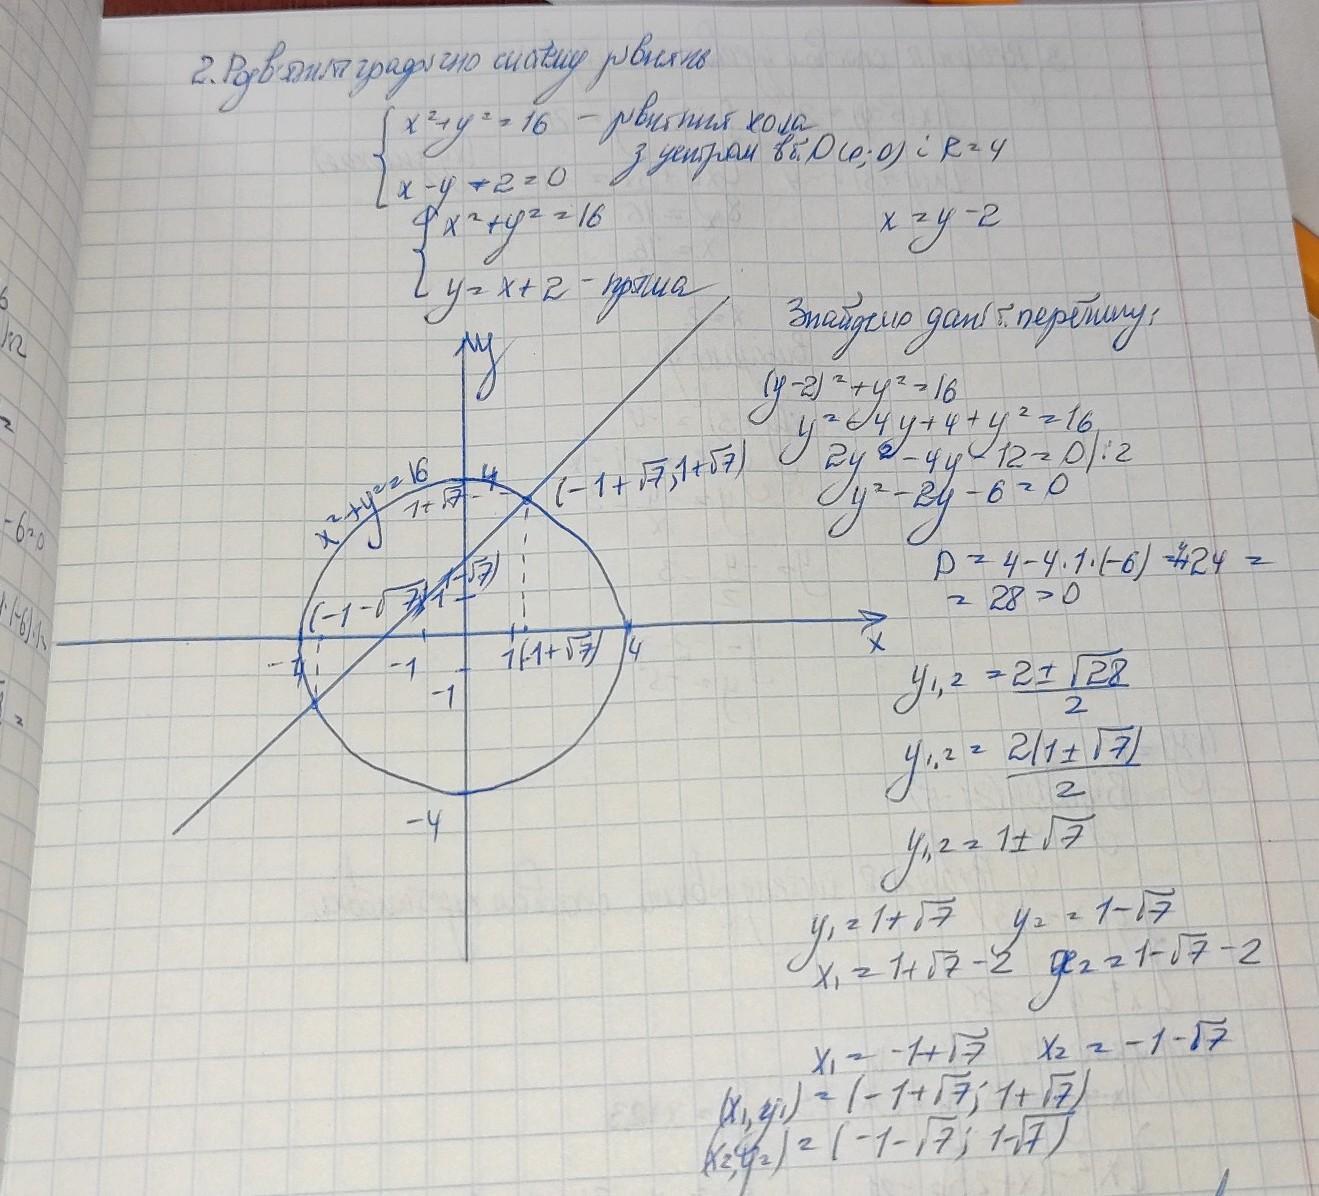 2. Розв'язати графічно систему рівнянь
x² + y² = 16 – рівняння кола
з центром в т. O(0; 0) і R = 4
x - y + 2 = 0
x² + y² = 16
x = y - 2
y = x + 2 – пряма
Знайдемо дані т. перетину:
(y-2)² + y² = 16
y² - 4y + 4 + y² = 16
2y² - 4y - 12 = 0 |:2
y² - 2y - 6 = 0
D = 4 - 4·1·(-6) = 4+24 =
= 28 > 0
y₁,₂ = (2 ± √28)/2
y₁,₂ = 2(1 ± √7)/2
y₁,₂ = 1 ± √7
y₁ = 1 + √7 y₂ = 1 - √7
x₁ = 1 + √7 - 2 x₂ = 1 - √7 - 2
x₁ = -1 + √7 x₂ = -1 - √7
(x₁, y₁) = (-1 + √7; 1 + √7)
(x₂, y₂) = (-1 - √7; 1 - √7)
y
x² + y² = 16
4
1+√7
(-1+√7; 1+√7)
(-1-√7; 1-√7)
1
-4
-1
1
(-1+√7)
4
x
-1
-4
-6=0